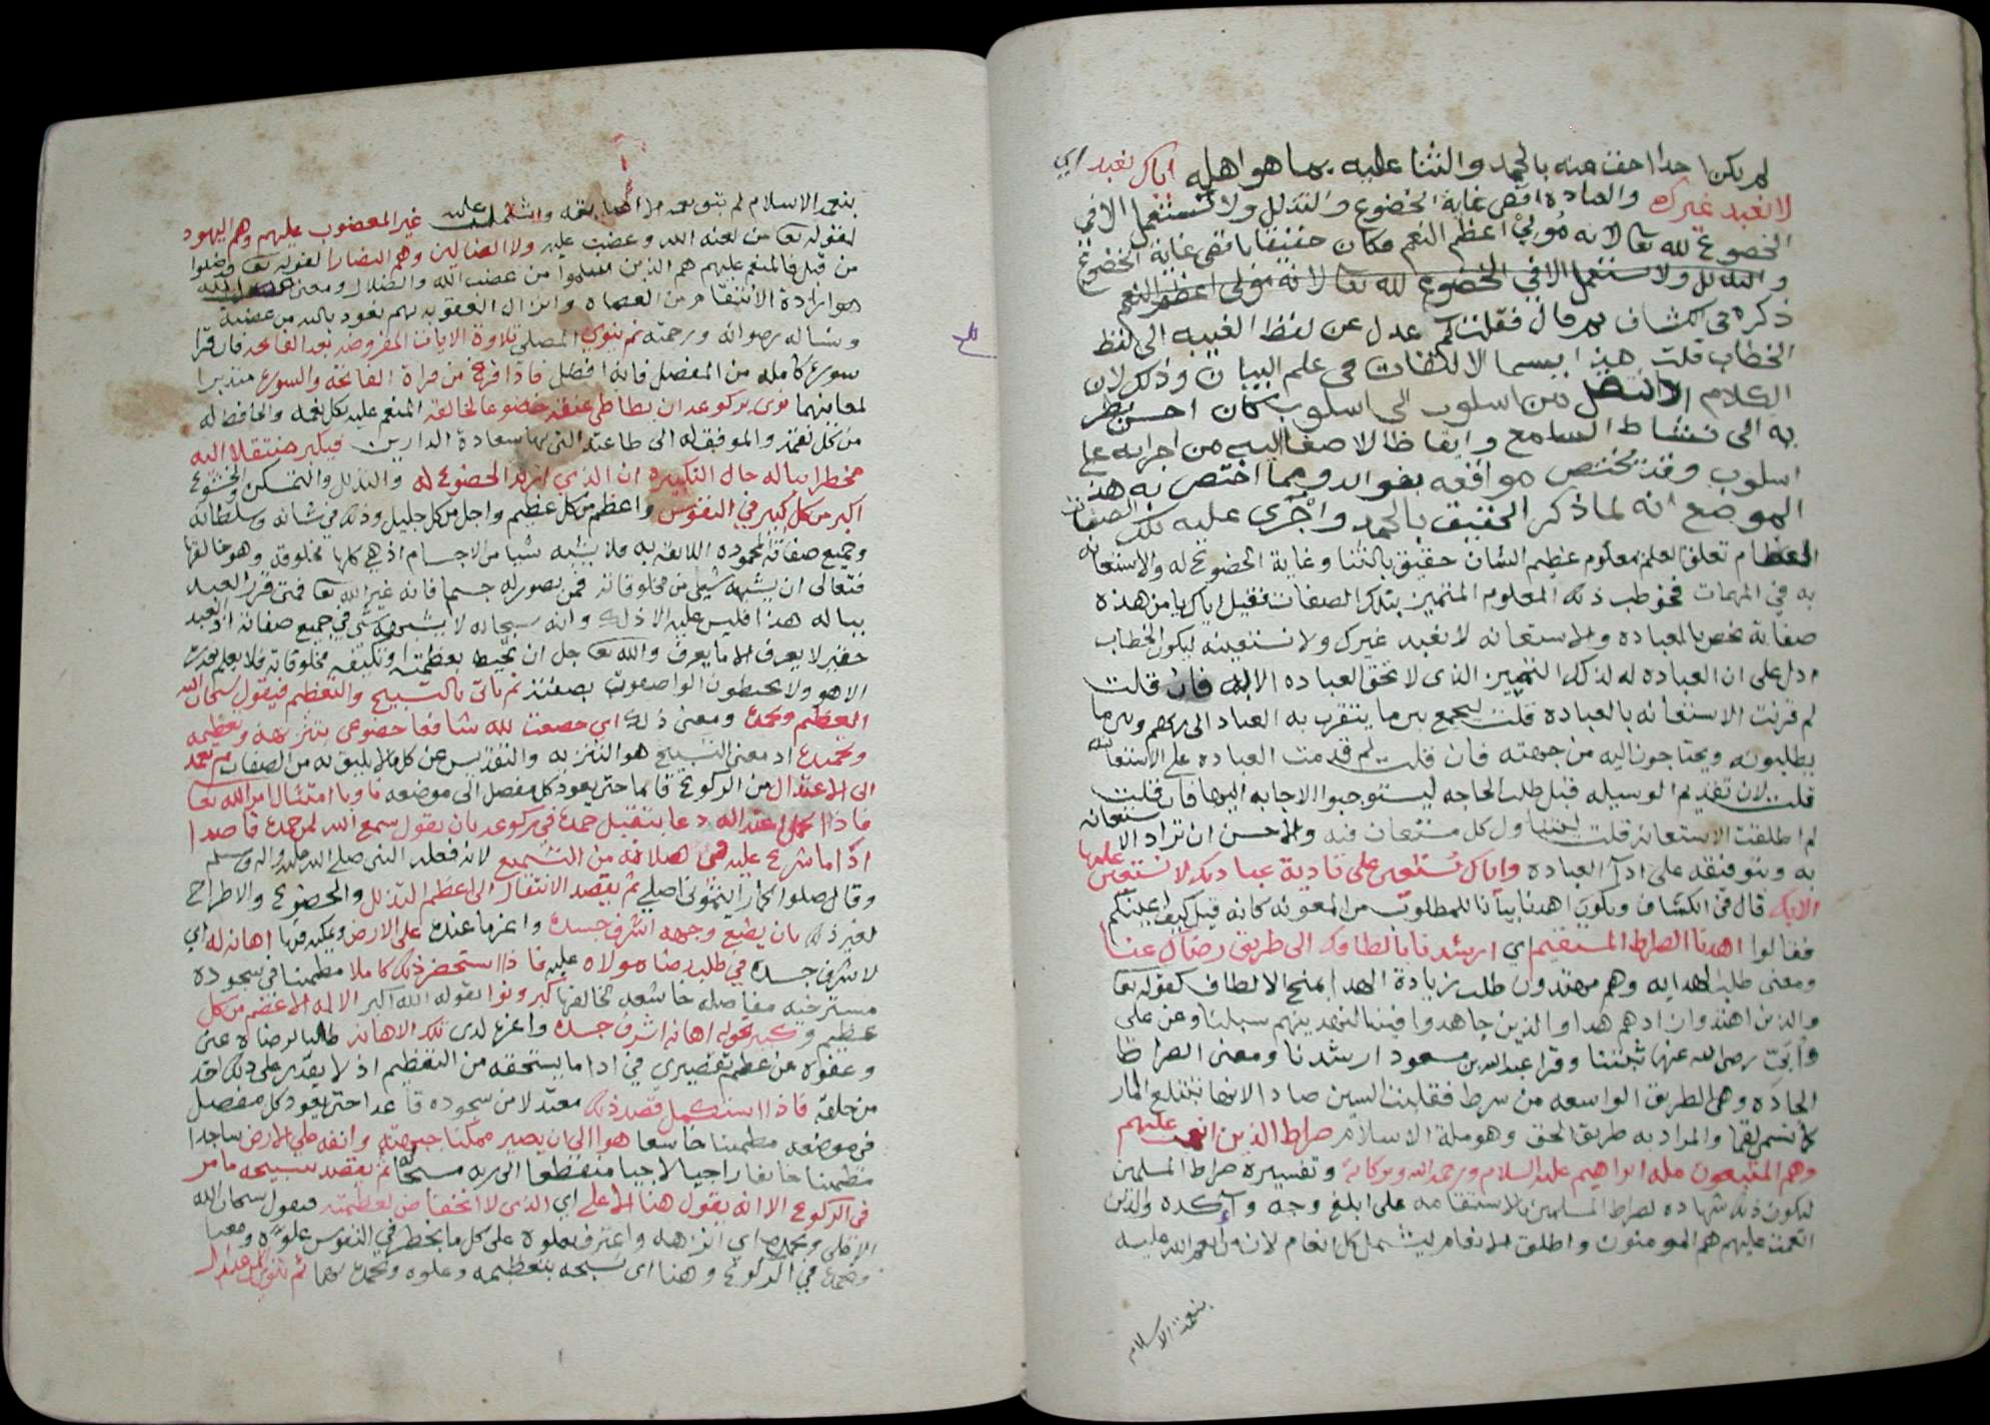 لم يكن احدا احق منه بالحمد والثنا عليه بما هو اهله اياك نعبد اي
لا نعبد غيرك والعباده اقصى غاية الخضوع والتذلل ولا تستعمل الا في
الخضوع لله تعا لانه مُولِيْ اعظم النعم فكان حقيقا باقصى غاية الخضوع
والتذلل ولا تستعمل الا في الخضوع لله تعا لانه مولى اعظم النعم
ذكره في الكشاف ثم قال فقلت لم عدل عن لفظ الغيبه الى لفظ
الخطاب قلت هذا يسما الالتفات في علم البيان وذلك لان
الكلام اذا انتقل من اسلوب الى اسلوب كان احسن نظر
به الى تنشاط السامع وايقاظا للاصغا اليه من اجرايه على
اسلوب وقد يختص مواقعه بفوايد ومما اختص به هذا
الموضع انه لما ذكر الحقيق بالحمد وأجْرَى عليه تلك الصفات
العظام تعلق العلم بمعلوم عظيم الشان حقيق بالثنا وغاية الخضوع له والاستعانه
به في المهمات فخوطب ذلك المعلوم المتميز بتلك الصفات فقيل اياك يا من هذه
صفاته نخص بالعباده والاستعانه لا نعبد غيرك ولا نستعينه ليكون الخطاب
ادل على ان العباده له لذلك التميز الذى لا تحق العباده الا له فان قلت
لم قرنت الاستعانه بالعباده قلت ليجمع بين ما يتقرب به العباد الى ربهم وبين ما
يطلبونه ويحتاجون اليه من جهته فان قلت لم قدمت العباده على الاستعانه
قلت لان تقديم الوسيله قبل طلب الحاجه ليستوجبوا الاجابه اليها فان قلت
لم اطلقت الاستعانه قلت ليتناول كل مستعان فيه والاحسن ان تراد الاستعانه
به وبتوفيقه على ادآ العباده واياك نستعين على تادية عبادتك لا نستعين عليها
الا بك قال في الكشاف ويكون اهدنا بيانا للمطلوب من المعونه كانه قيل كيف اعينكم
فقالوا اهدنا الصراط المستقيم اي ارشدنا بالطافك الى طريق رضاك عنا
ومعنى طلب الهدايه وهم مهتدون طلب زيادة الهدا بمنح الالطاف كقوله تعا
والذين اهتدوا زادهم هدا والذين جاهدوا فينا لنهدينهم سبلنا وعن على
وأبَيّ رضى الله عنهما ثبتنا وقرا عبدالله بن مسعود ارشدنا ومعنى الصراط
الجاده وهى الطريق الواسعه من سرط فقلبت السين صاد لانها تبتلع المار
كانتسم لقما والمراد به طريق الحق وهو ملة الاسلام صراط الذين انعمت عليهم
وهم المتبعون مله ابراهيم عليه السلام ورحمه الله وبركاته وتفسيره صراط المسلمين
ليكون ذلك شهاده لصراط المسلمين بالاستقامه على ابلغ وجه وآكده والذين
انعمت عليهم هم المومنون واطلق الانعام ليشتمل كل انعام لان من انعم الله عليه
بنعمة الاسلام
بنعمة الاسلام لم تبق نعمه الا اصابته واشتملت عليه غير المغضوب عليهم وهم اليهود
لقوله تعا من لعنه الله وغضب عليه ولا الضالين وهم النصارا لقوله تعا قد ضلوا
من قبل فالمنعم عليهم هم الذين سلموا من غضب الله والضلال ومعنى غضب الله
هو ارادة الانتقام من العصاه وانزال العقوبه بهم نعوذ بالله من غضبه
ونساله رضوانه ورحمته ثم ينوي المصلى تلاوة الايات المفروضه بعد الفاتحه فان قرا
سورة كامله من المفصل فانه افضل فاذا فرغ من قراة الفاتحه والسوره متدبرا
لمعانيهما نوى بركوعه ان يطاطي عنقه خضوعا لخالقه المنعم عليه بكل نعمه والحافظ له
من كل نقمه والموفق له الى طاعته التى بها سعادة الدارين فيكبر منتقلا اليه
مخطرا بباله حال التكبيره ان الذي اريد الخضوع له والتذلل والتمسكن والخشوع
اكبر من كل كبير في النفوس واعظم من كل عظيم واجل من كل جليل وذلك في شانه وسلطانه
وجميع صفاته المحموده اللايقه به فلا يشبه شيا من الاجسام اذ هي كلها مخلوقه وهو خالقها
فتعالى ان يشبهه شيئ من مخلوقاته فمن تصور له جسم فانه غير الله تعا فمتى قرر العبد
بباله هذا فليس عليه الا ذلك وانه سبحانه لا يشبهه شى في جميع صفاته اذ العبد
حقير لا يعرف الا ما يعرف والله تعا جل ان تحيط بعظمته او تكيفه مخلوقاته فلا يعلم قدرت
الا هو ولا يحيطون الواصفون بصفته ثم ياتى بالتسبيح والتعظيم فيقول سبحان الله
العظيم وبحمده ومعنى ذلك اى خضعت لله شافعا خضوعى بتنزيهه وتعظيمه
وتحميده اذ معنى التسبيح هو التنزيه والتقديس عن كل ما لا يليق به من الصفات ثم يعمد
الى الاعتدال من الركوع قايما حتى يعود كل مفصل الى موضعه ناويا امتثال امر الله تعا
فاذا كمل اعتداله دعا بتقبل حمده في ركوعه بان يقول سمع الله لمن حمده قاصدا
اذا ما شرع عليه فى صلاته من التسميع لانه فعله النبى صلى الله عليه واله وسلم
وقال صلوا كما رايتمونى اصلى ثم يقصد الانتقال الى اعظم التذلل والخضوع والاطراح
لعز ذلك بان يضع وجهه اشرف جسده واعزها عنده على الارض ويمكنه فيها اهانه له اي
لاشرف جسده في طلب رضاه مولاه عليه فاذا استحضر ذلك كاملا مطمينا في سجوده
مسترخيه مفاصله خاشعه لخالقها كبر ونوا بقوله الله اكبر الاله الاعظم من كل
عظيم وكبير نحو به اهانه اشرف جسده واعزه لدى تلك الاهانه طالبا لرضاه عنى
وعفوه عن عظيم تقصيري في ادا ما يستحقه من التعظيم اذ لا يقدر على ذلك احد
من خلقه فاذا استكمل قصد ذلك معتدلا من سجوده قاعدا حتى يعود كل مفصل
في موضعه مطمينا خاشعا هوا الى ان يصير ممكنا جبهته وانفه على الارض ساجدا
مطمينا خايفا راجيا لاجيا منقطعا الى ربه مسبحا له ثم يقصد بتسبيحه ما مر
في الركوع الا انه يقول هنا الاعلى اي الذى لا انخفاض لعظمته فيقول سبحان الله
الاعلى وبحمده اي انزهه واعترف بعلوه على كل ما يخطر في النفوس علوه ومعنا
وبحمده في الركوع وهنا اى نسبحه بتعظيمه وعلوه وبحمده ثم ينوى الاعتدال